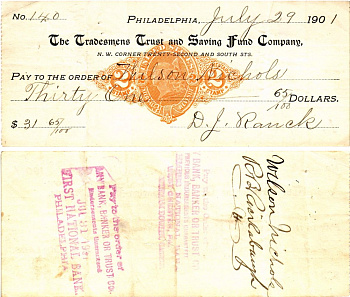 No. 140
PHILADELPHIA, July 29 1901
The Tradesmens Trust and Saving Fund Company,
N. W. CORNER TWENTY-SECOND AND SOUTH STS.
PAY TO THE ORDER OF Wilson Nichols
Thirty One 65/100 DOLLARS.
$ 31 65/100 D. J. Ranck
2 2
Pay to the order of
ANY BANK, BANKER OR TRUST CO.
Endorsements Guaranteed
JUL 31
FIRST NATIONAL BANK
PHILADELPHIA
BANK, BANKER OR TRUST CO.
Wilson Nichols